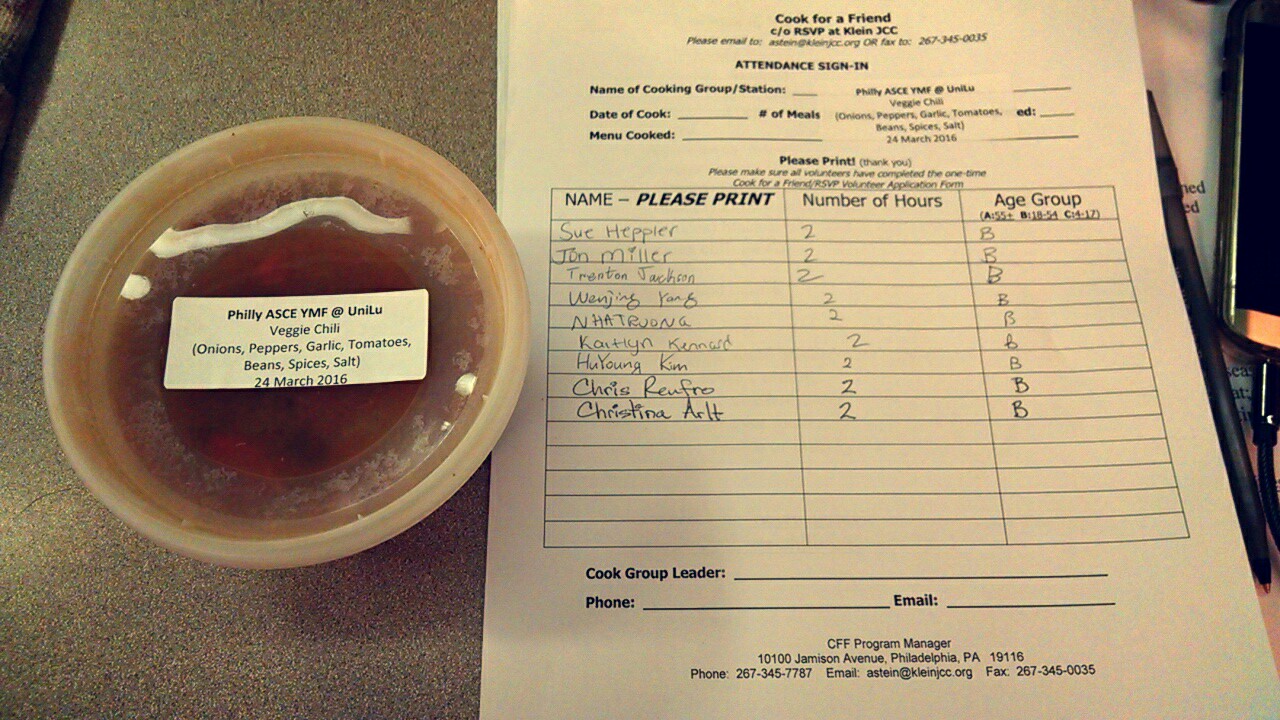 Philly ASCE YMF @ UniLu
Veggie Chili
(Onions, Peppers, Garlic, Tomatoes,
Beans, Spices, Salt)
24 March 2016
Cook for a Friend
c/o RSVP at Klein JCC
Please email to: astein@kleinjcc.org OR fax to: 267-345-0035
ATTENDANCE SIGN-IN
Name of Cooking Group/Station:
Philly ASCE YMF @ UniLu
Veggie Chili
Date of Cook: # of Meals (Onions, Peppers, Garlic, Tomatoes, ed:
Beans, Spices, Salt)
Menu Cooked: 24 March 2016
Please Print! (thank you)
Please make sure all volunteers have completed the one-time
Cook for a Friend/RSVP Volunteer Application Form
NAME – PLEASE PRINT Number of Hours Age Group
(A:55+ B:18-54 C:4-17)
Sue Heppler 2 B
Jon Miller 2 B
Trenton Jackson 2 B
Wenjing Yang 2 B
NHATRUONG 2 B
Kaitlyn Kennard 2 B
HuYoung Kim 2 B
Chris Renfro 2 B
Christina Arlt 2 B
Cook Group Leader:
Phone: Email:
CFF Program Manager
10100 Jamison Avenue, Philadelphia, PA 19116
Phone: 267-345-7787 Email: astein@kleinjcc.org Fax: 267-345-0035